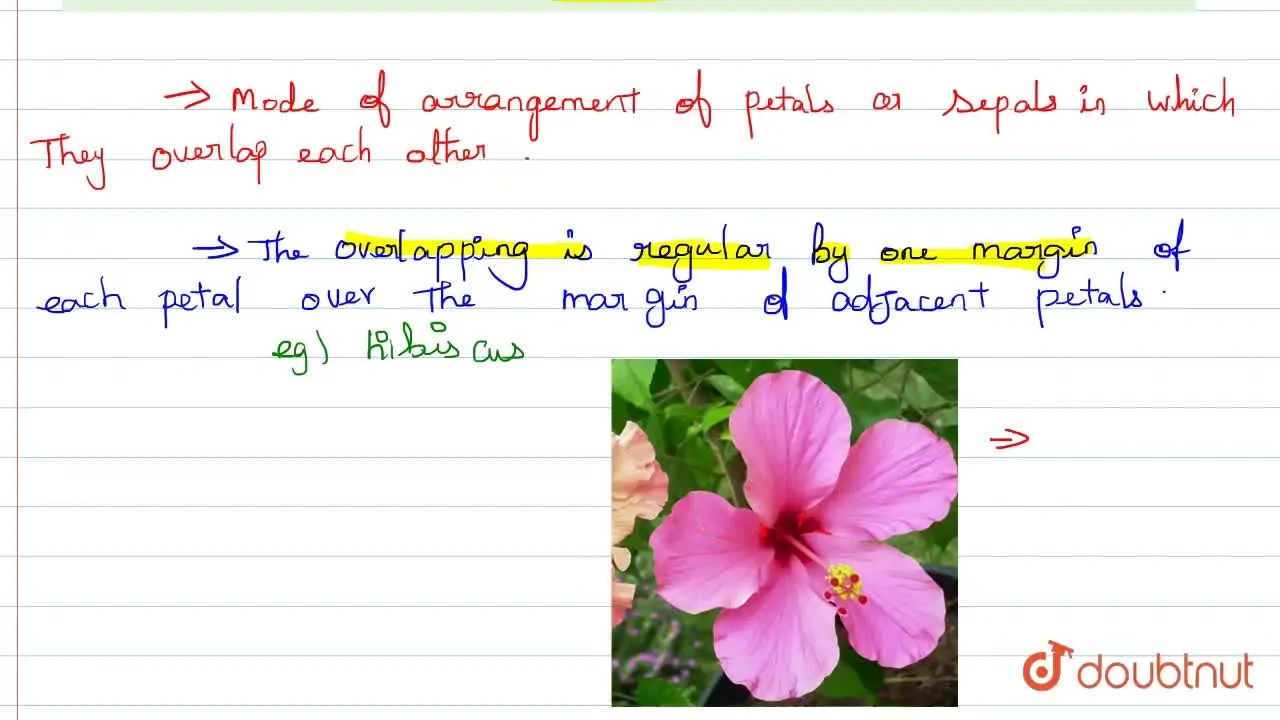 → Mode of arrangement of petals or sepals in which
They overlap each other.
→ The overlapping is regular by one margin of
each petal over the margin of adjacent petals.
eg) hibiscus
→
doubtnut